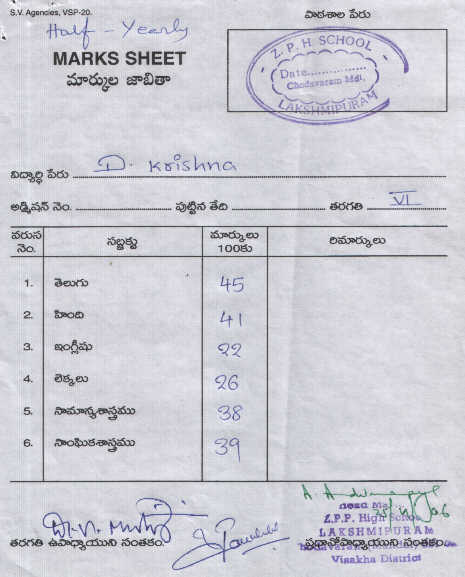 S.V. Agencies, VSP-20.
Half - Yearly
పాఠశాల పేరు
MARKS SHEET
మార్కుల జాబితా
Z.P.H SCHOOL
Date...............
Chodavaram Mdl.
LAKSHMIPURAM
విద్యార్థి పేరు D. Krishna
అడ్మిషన్ నెం. పుట్టిన తేది తరగతి VI
వరుస నెం. సబ్జక్టు మార్కులు 100కు రిమార్కులు
1. తెలుగు 45
2. హింది 41
3. ఇంగ్లీషు 22
4. లెక్కలు 26
5. సామాన్యశాస్త్రము 38
6. సాంఘికశాస్త్రము 39
Z.P.P. High School
LAKSHMIPURAM
తరగతి ఉపాధ్యాయుని సంతకం. ప్రధానోపాధ్యాయుని సంతకం.
Visakha District